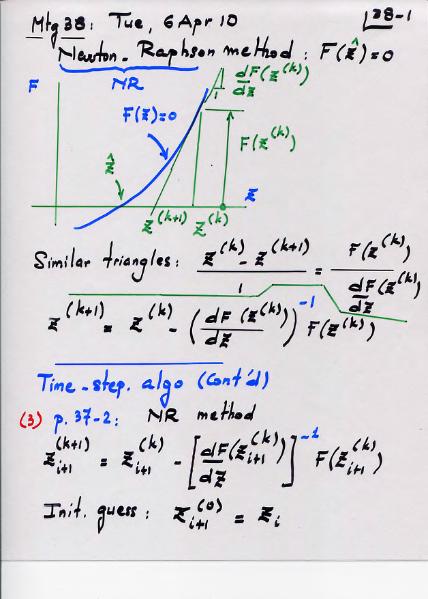 Mtg 38: Tue, 6 Apr 10
38-1
Newton-Raphson method: F(ẑ)=0
NR
F
dF(z^(k))
dz
1
F(z)=0
F(z^(k))
ẑ
z
z^(k+1) z^(k)
Similar triangles: (z^(k) - z^(k+1)) / 1 = F(z^(k)) / (dF(z^(k))/dz)
z^(k+1) = z^(k) - (dF(z^(k))/dz)^-1 F(z^(k))
Time-step. algo (Cont'd)
(3) p. 37-2: NR method
z_{i+1}^(k+1) = z_{i+1}^(k) - [dF(z_{i+1}^(k))/dz]^-1 F(z_{i+1}^(k))
Init. guess: z_{i+1}^(0) = z_i